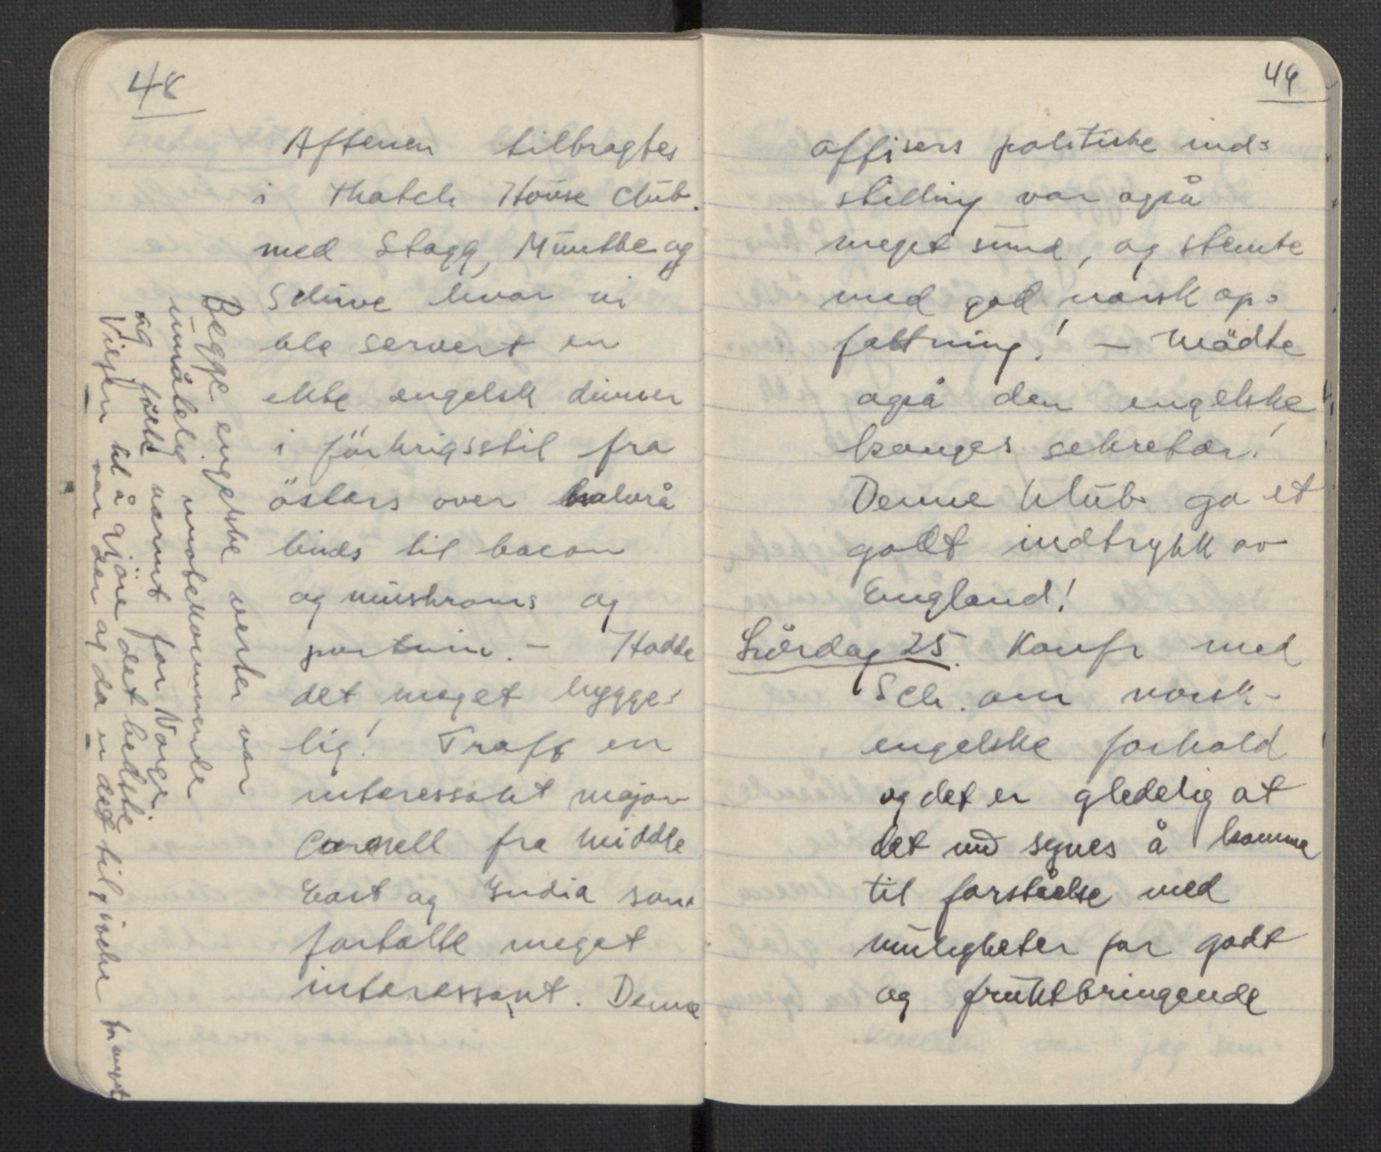 48
Aftenen tilbragtes
i Thatch House Club.
med Stagg, Munthe og
Schive hvor vi
ble servert en
ekte engelsk dinner
i förkrigsstil fra
östers over kalvrå
binds til bacon
og mushrooms og
portvin. - Hadde
det meget hygge=
lig! Traff en
interessant major
fra Middle
East og India som
fortalte meget
interessant. Denne
Begge engelske verter var
umåtelig imotekommende
og följte varmt for Norge.
Viljen til å gjöre det bedste
var der og da er det tilgivelse
49
offisers politiske ind=
stilling var også
meget sund, og stemte
med god norsk op=
fattning! - Mödte
også den engelske
konges sekretær!
Denne klub ga et
godt indtrykk av
England!
Lördag 25. Konfr med
Sch. om norsk-
engelske forhold
og det er gledelig at
det nu synes å komme
til forståelse med
muligheter for godt
og fruktbringende